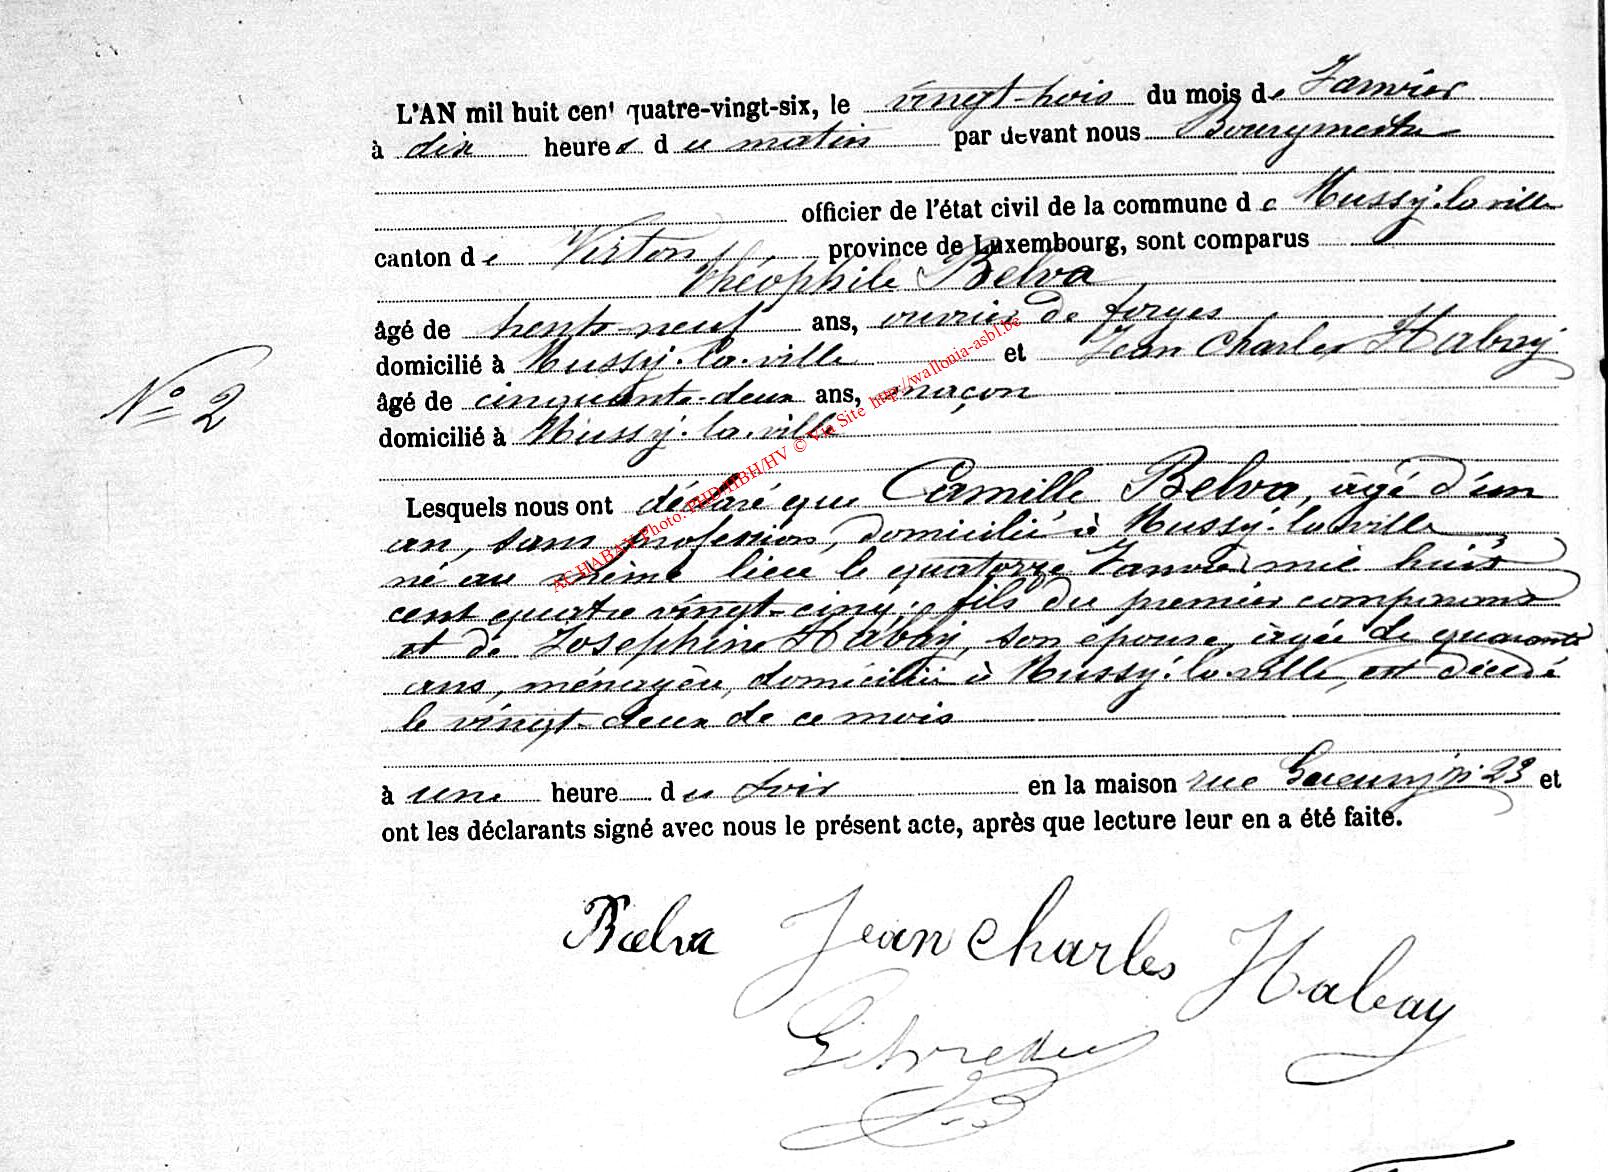 L'AN mil huit cent quatre-vingt-six, le vingt-trois du mois de Janvier
à dix heures du matin par devant nous Bourgmestre
officier de l'état civil de la commune de Mussy-la-ville
canton de Virton, province de Luxembourg, sont comparus
Théophile Belva
âgé de trente-neuf ans, ouvrier de forges
domicilié à Mussy-la-ville et Jean Charles Habay
âgé de cinquante-deux ans, maçon
domicilié à Mussy-la-ville
N° 2
Lesquels nous ont déclaré que Camille Belva, âgé d'un
an, sans profession, domicilié à Mussy-la-ville
né au même lieu le quatorze Janvier mil huit
cent quatre vingt-cinq, fils du premier comparant
et de Joséphine Habay, son épouse, âgée de quarante
ans, ménagère, domiciliée à Mussy-la-ville, est décédé
le vingt-deux de ce mois
à une heure du soir en la maison rue n° 23 et
ont les déclarants signé avec nous le présent acte, après que lecture leur en a été faite.
Belva Jean Charles Habay
AGHABAY Photo: PHD/HBH/HV © Via Site http://wallonia-asbl.be